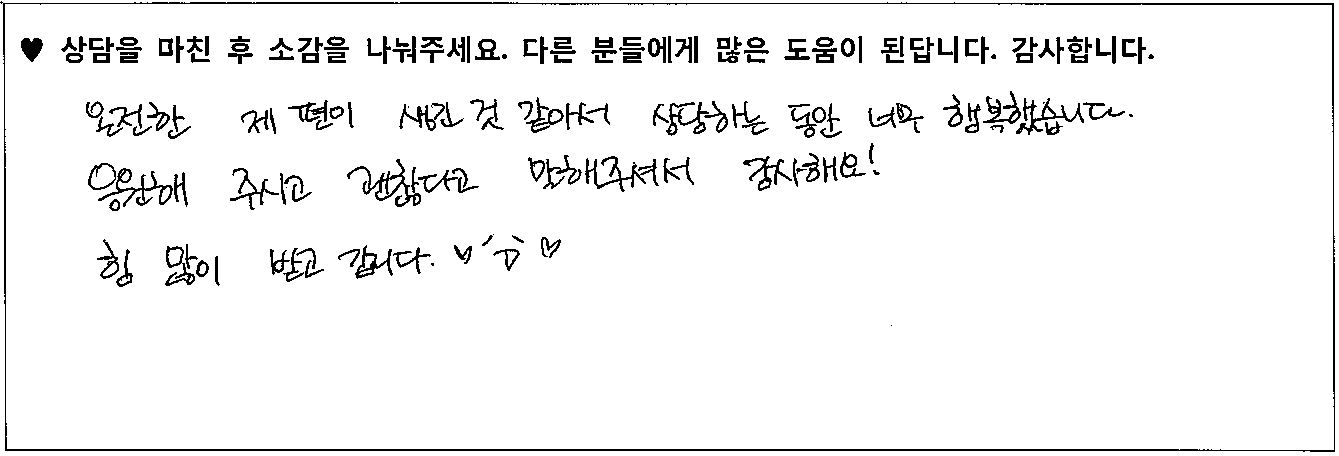 ♥ 상담을 마친 후 소감을 나눠주세요. 다른 분들에게 많은 도움이 된답니다. 감사합니다.
온전한 제 편이 생긴 것 같아서 상담하는 동안 너무 행복했습니다.
응원해 주시고 괜찮다고 말해주셔서 감사해요!
힘 많이 받고 갑니다. ♥'ᴗ'♥